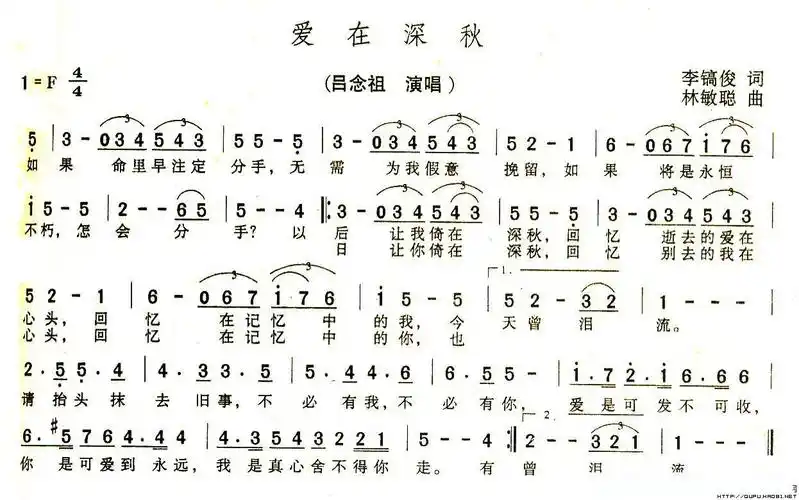 爱在深秋
1=F 4/4 (吕念祖 演唱) 李镐俊 词
林敏聪 曲
3 3 3 3 3
5 | 3 - 034 543 | 55 - 5 | 3 - 034 543 | 52 - 1 | 6 - 067 176 |
如果 命里早注定 分手,无需 为我假意 挽留,如果 将是永恒
3 3
15 - 5 | 2 - - 65 | 5 - - 4 ‖: 3 - 034 543 | 55 - 5 | 3 - 034 543 |
不朽,怎会 分手? 以后 让我倚在 深秋,回忆 逝去的爱在
日 让你倚在 深秋,回忆 别去的我在
3 3 1.
52 - 1 | 6 - 067 176 | 15 - 5 | 52 - 32 | 1 - - - |
心头,回忆 在记忆中 的我,今 天曾泪 流。
心头,回忆 在记忆中 的你,也
2.5 5.4 | 4.2 2.5 | 5.4 4.6 | 6.5 5 - | 1.7 2.1 6.6 6 |
请抬头抹去旧事,不必有我,不必有你, 爱是可发不可收,
6.#5 764 4.4 | 4.2 217 5.5 5 | 5 - - 4 :‖ 2. 52 - 3 21 | 1 - - - ‖
你是可爱到永远,我是真心舍不得你 走。有 曾泪 流
HTTP://QUPU.HAO81.NET